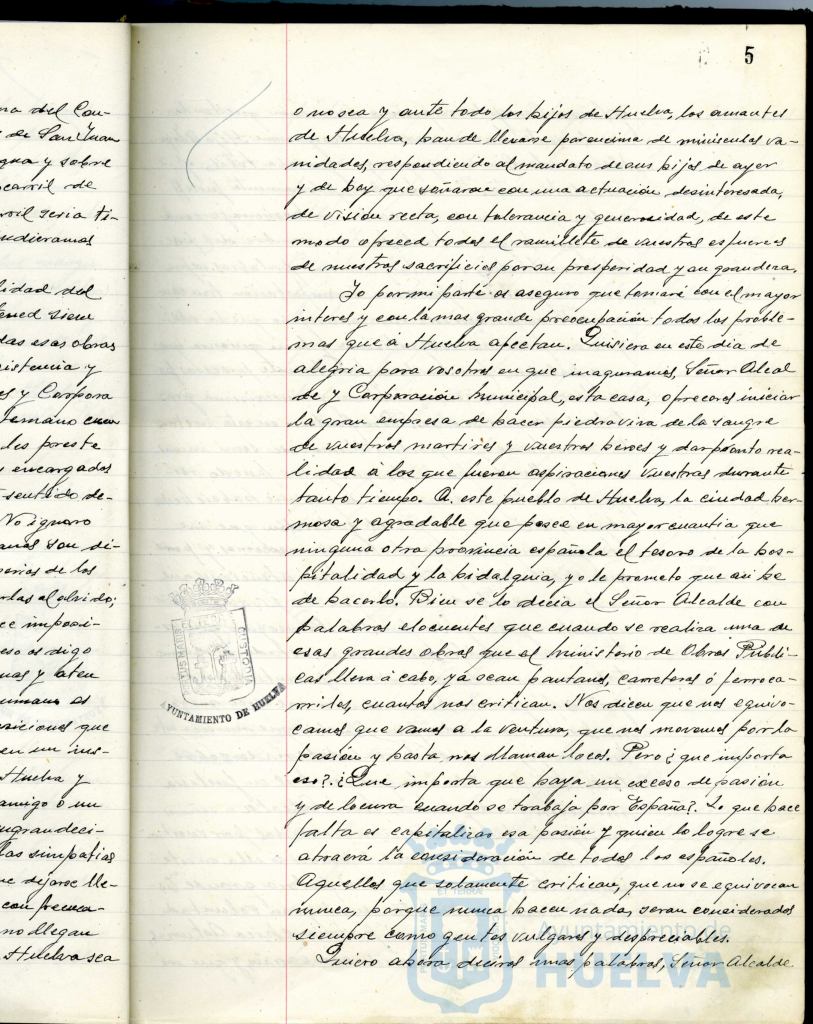 na del Con-
de San Juan
gua y sobre
ocarril de
rril seria ti-
udieramos
lidad del
das esas obras
istencia y
es y Corpora
temano
les preste
encargados
sentido de-
No ignoro
son di-
de los
al olvido;
ce imposi-
eso os digo
mas y aten
umano es
siciones que
en un ins-
Huelva y
amigo o un
ngrandeci-
las simpatias
dejarse lle-
con frecu
no llegan
Huelva sea
5
o no sea y ante todo los hijos de Huelva, los amantes
de Huelva, han de llevarse por encima de minúsculas va-
nidades, respondiendo al mandato de sus hijos de ayer
y de hoy que soñaron con una actuación desinteresada,
de visión recta, con tolerancia y generosidad, de este
modo ofreced todos el ramillete de vuestros esfuerzos
de nuestros sacrificios por su prosperidad y su grandeza.
Yo por mi parte os aseguro que tomaré con el mayor
interes y con la mas grande preocupación todos los proble-
mas que á Huelva afectan. Quisiera en este dia de
alegria para vosotros en que inaguramos, Señor Alcal
de y Corporación Municipal, esta casa, ofreceros iniciar
la gran empresa de hacer piedra viva de la sangre
de vuestros martires y vuestros heroes y dar pronto rea-
lidad á los que fueron aspiraciones vuestras durante
tanto tiempo. A este pueblo de Huelva, la ciudad her-
mosa y agradable que posee en mayor cuantia que
ninguna otra provincia española el tesoro de la hos-
pitalidad y la hidalguia, yo le prometo que asi he
de hacerlo. Bien se lo decia el Señor Alcalde con
palabras elocuentes que cuando se realiza una de
esas grandes obras que el Ministerio de Obras Públi-
cas lleva á cabo, yá sean pantanos, carreteras ó ferroca-
rriles, cuantos nos critican. Nos dicen que nos equivo-
camos que vamos a la ventura, que nos movemos por la
pasión y hasta nos llaman locos. Pero ¿que importa
eso?. ¿Que importa que haya un exceso de pasión
y de locura cuando se trabaja por España?. Lo que hace
falta es capitalizar esa pasión y quien lo logre se
atraerá la consideración de todos los españoles.
Aquellos que solamente critican, que no se equivocan
nunca, porque nunca hacen nada, seran considerados
siempre como gentes vulgares y despreciables.
Quiero ahora deciros unas palabras, Señor Alcalde
AYUNTAMIENTO DE HUELVA
Ayuntamiento de
HUELVA